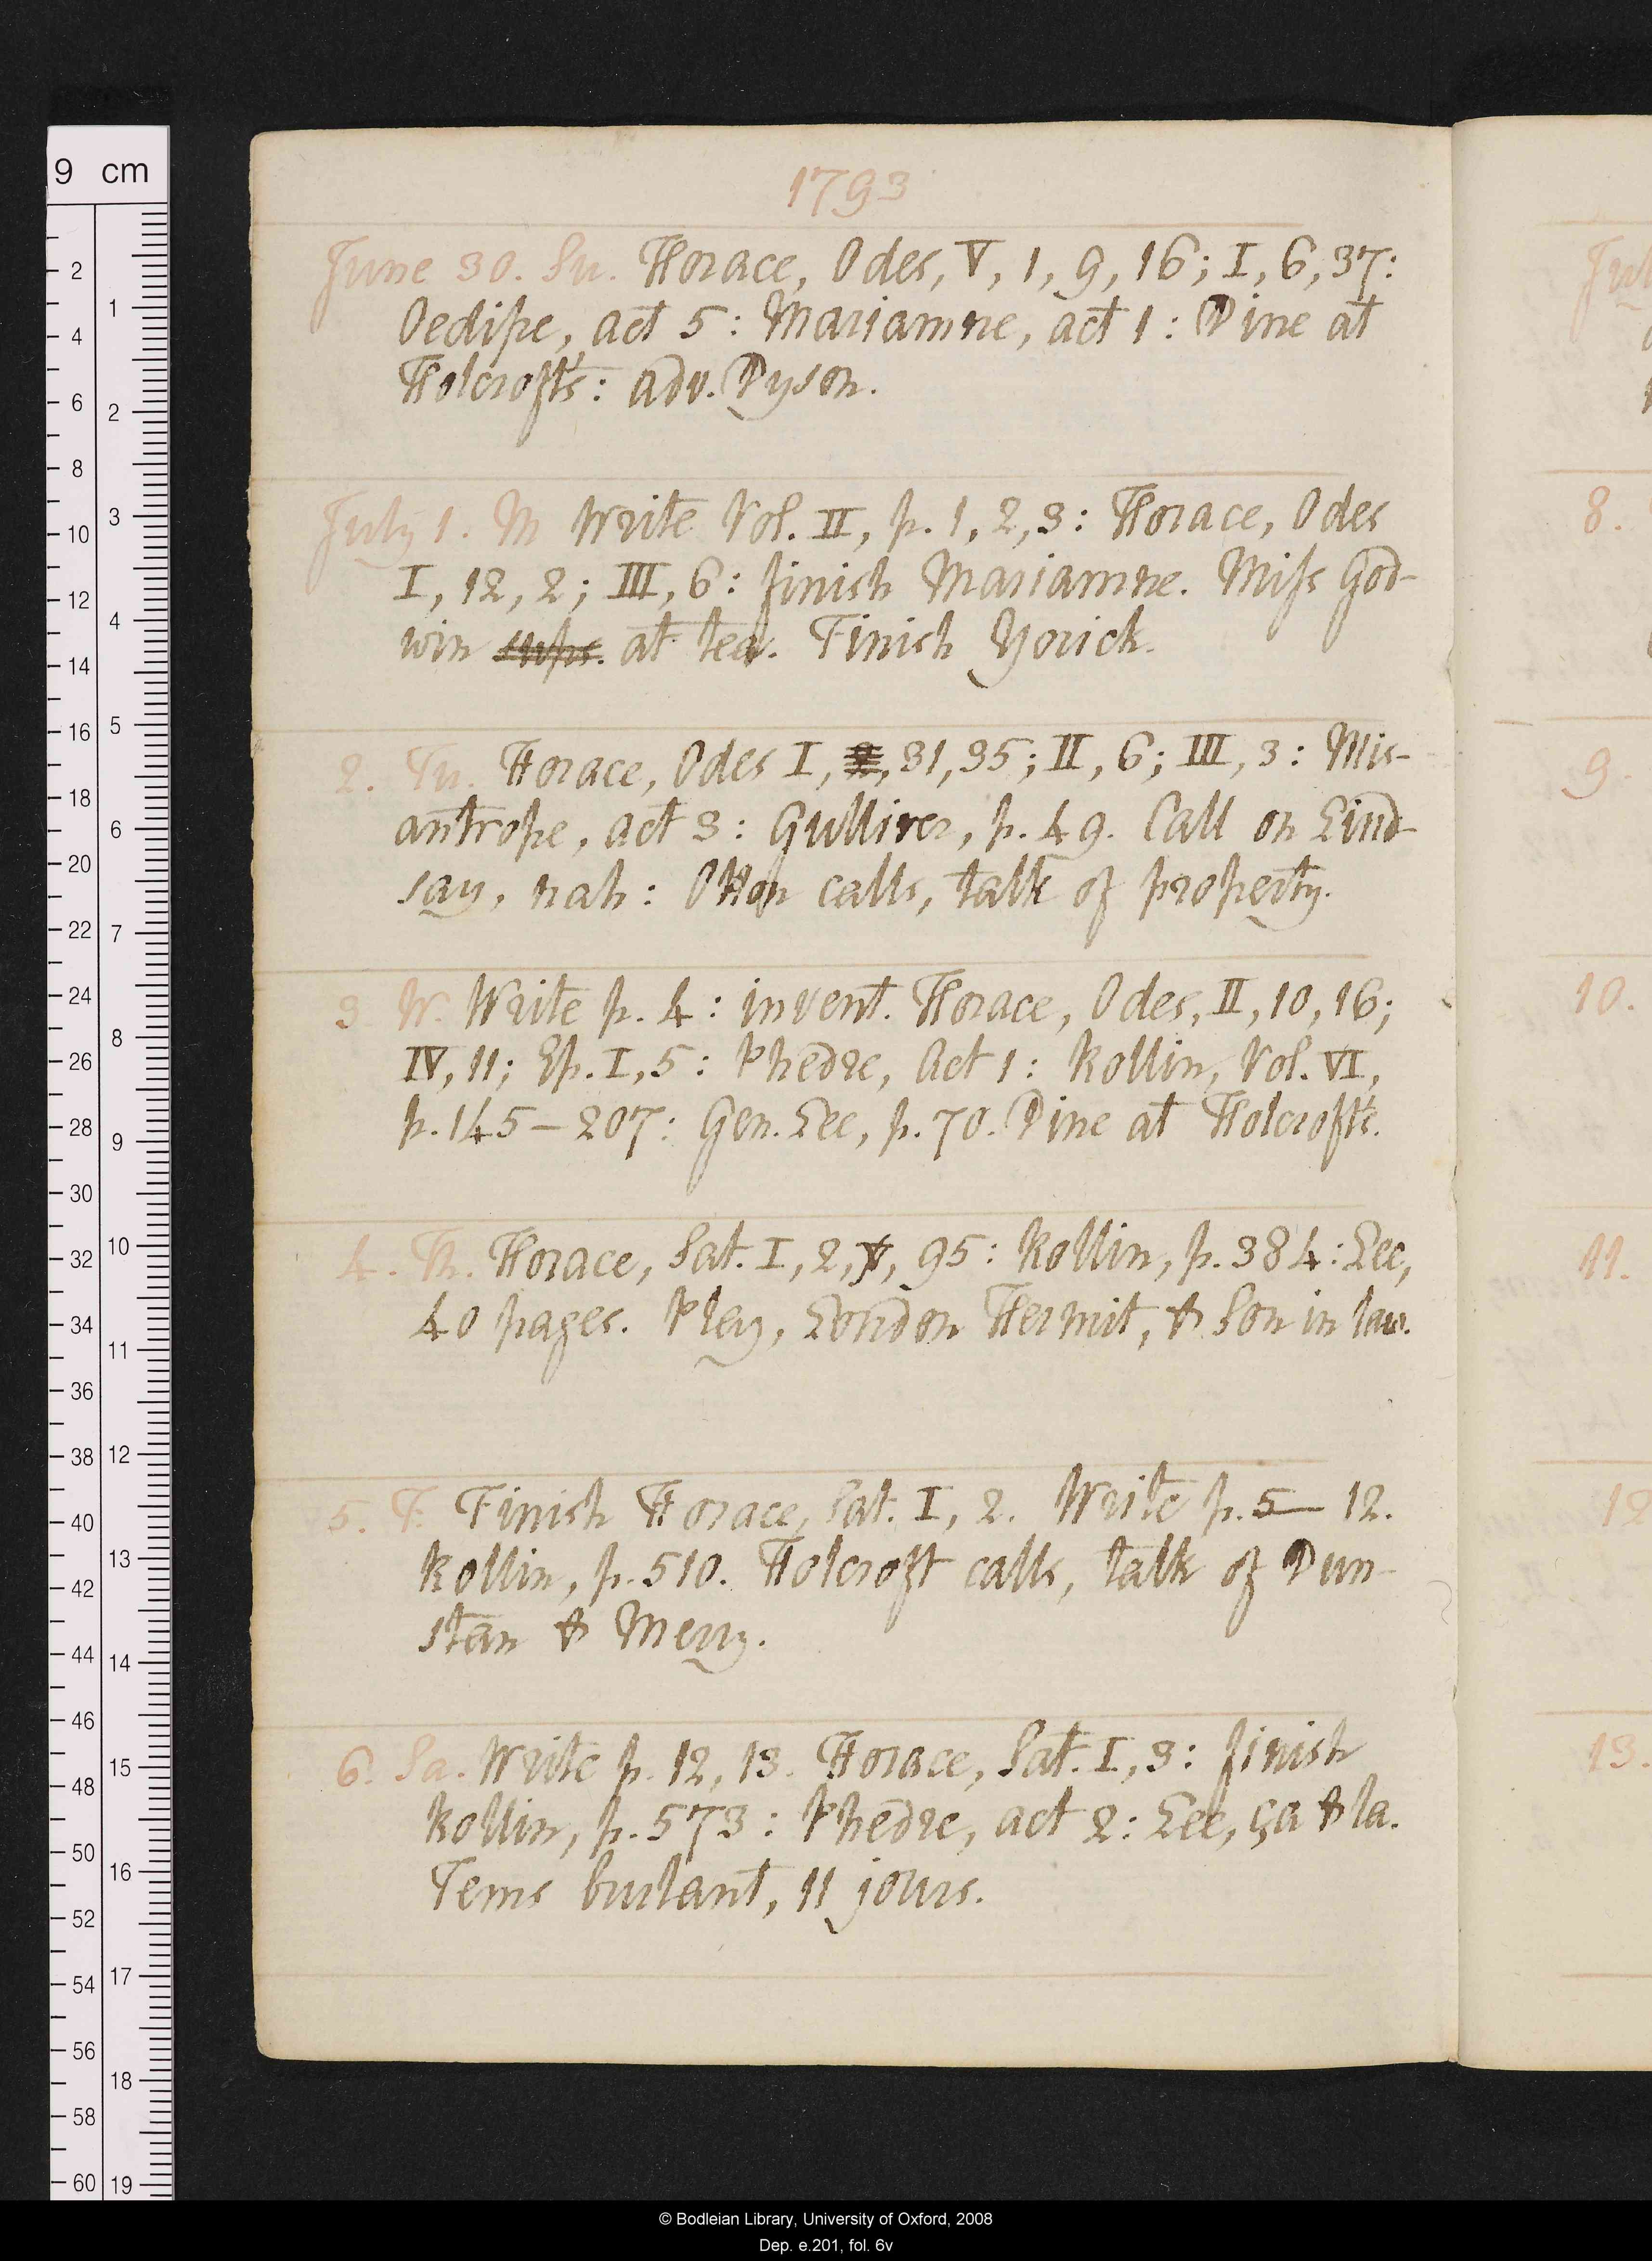 1793
June 30. Su. Horace, Odes, V, 1, 9, 16; I, 6, 37:
Oedipe, act 5: Mariamne, act 1: Dine at
Holcroft's: adv. Dyson.
July 1. M Write Vol. II, p. 1, 2, 3: Horace, Odes
I, 12, 2; III, 6: finish Mariamne. Miss God-
win sups. at tea. Finish Yorick.
2. Tu. Horace, Odes I, 2, 31, 35; II, 6; III, 3: Mis-
antrope, act 3: Gulliver, p. 49. Call on Lind-
say, nah: Otton calls, talk of property.
3. W. Write p. 4: invent. Horace, Odes, II, 10, 16;
IV, 11; Ep. I, 5: Phedre, Act 1: Rollin, Vol. VI,
p. 145–207: Gen. Lee, p. 70. Dine at Holcroft's.
4. Th. Horace, Sat. I, 2, v, 95: Rollin, p. 384: Lee,
40 pages. Play, London Hermit, & Son in law.
5. F. Finish Horace, Sat. I, 2. Write p. 5—12.
Rollin, p. 510. Holcroft calls, talk of Dun-
stan & Merry.
6. Sa. Write p. 12, 13. Horace, Sat. I, 3: finish
Rollin, p. 573: Phedre, act 2: Lee, ça & la.
Tems brulant, 11 jours.
9 cm
2
4
6
8
10
12
14
16
18
20
22
24
26
28
30
32
34
36
38
40
42
44
46
48
50
52
54
56
58
60
1
2
3
4
5
6
7
8
9
10
11
12
13
14
15
16
17
18
19
Jul
8.
9.
10.
11.
12
13.
© Bodleian Library, University of Oxford, 2008
Dep. e.201, fol. 6v